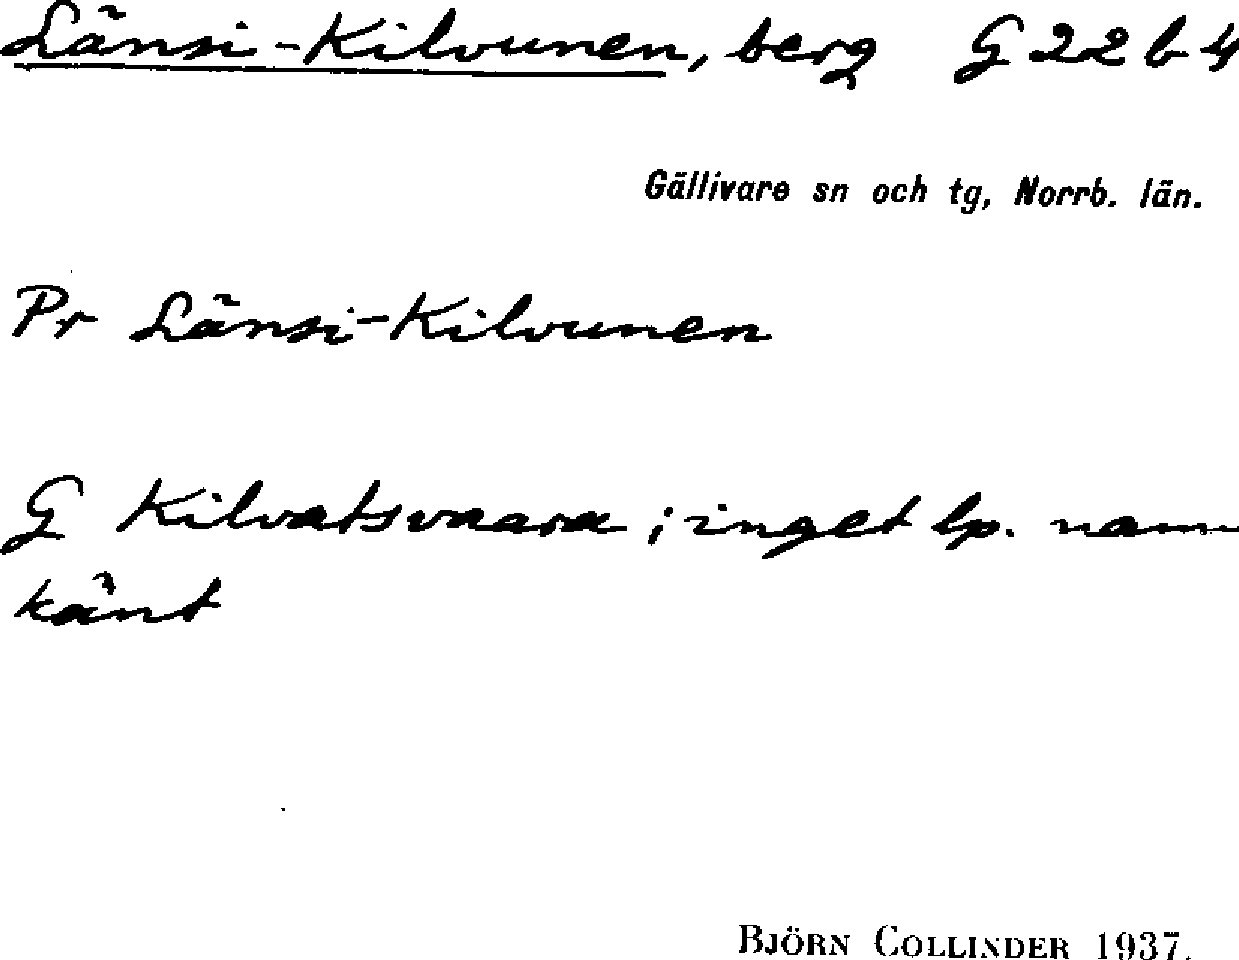 Länsi-Kilvunen, berg G 22 b 4
Gällivare sn och tg, Norrb. län.
Pr Länsi-Kilvunen
G Kilvatsvaara; inget lp. namn
känt
BJÖRN COLLINDER 1937.